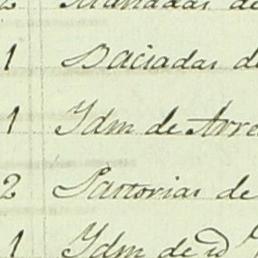 2 Manadas de
1 Baciadas de
1 Idm de Arre
2 Sartorias de
1 Idm de id